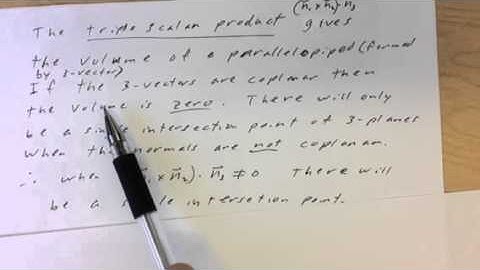 The triple scalar product (n⃗₁ × n⃗₂)·n⃗₃ gives
the volume of a parallelopiped (formed
by 3-vectors)
If the 3-vectors are coplanar then
the volume is zero. There will only
be a single intersection point of 3-planes
when the normals are not coplanar.
∴ when × n⃗₂)·n⃗₃ ≠ 0 There will
be a intersetion point.